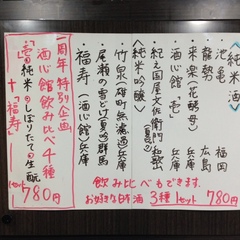 純米酒
池亀 福岡
龍勢 広島
来楽(花酵母) 兵庫
酒心館・壱 兵庫
紀ノ国屋文佐衛門 和歌山
〈純米吟醸〉
竹泉(雄町無濾過)兵庫
尾瀬の雪どけ(夏吟)群馬
福寿(酒心館)兵庫
一周年特別企画
酒心館飲み比べ4種
純米 しぼりたて 生酛
+「福寿」
1セット 780円
飲み比べもできます。
お好きな日本酒 3種 1セット 780円